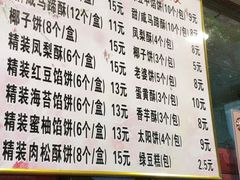 甜/咸马蹄酥(12个/盒) 15元
椰子饼(8个/盒) 11元
精装凤梨酥(6个/盒) 15元
精装红豆馅饼(6个/盒) 13元
精装海苔馅饼(6个/盒) 13元
精装蜜柚馅饼(6个/盒) 13元
精装肉松酥饼(8个/盒) 15元
甜/咸马蹄酥(10个/包) 9元
凤梨酥(4个/包) 8元
椰子饼(5个/包)
老婆饼(5个/包)
蛋黄酥(3个/包)
香芋酥(3个/包) 8元
太阳饼(4个/包) 9元
绿豆糕(包) 2.5元